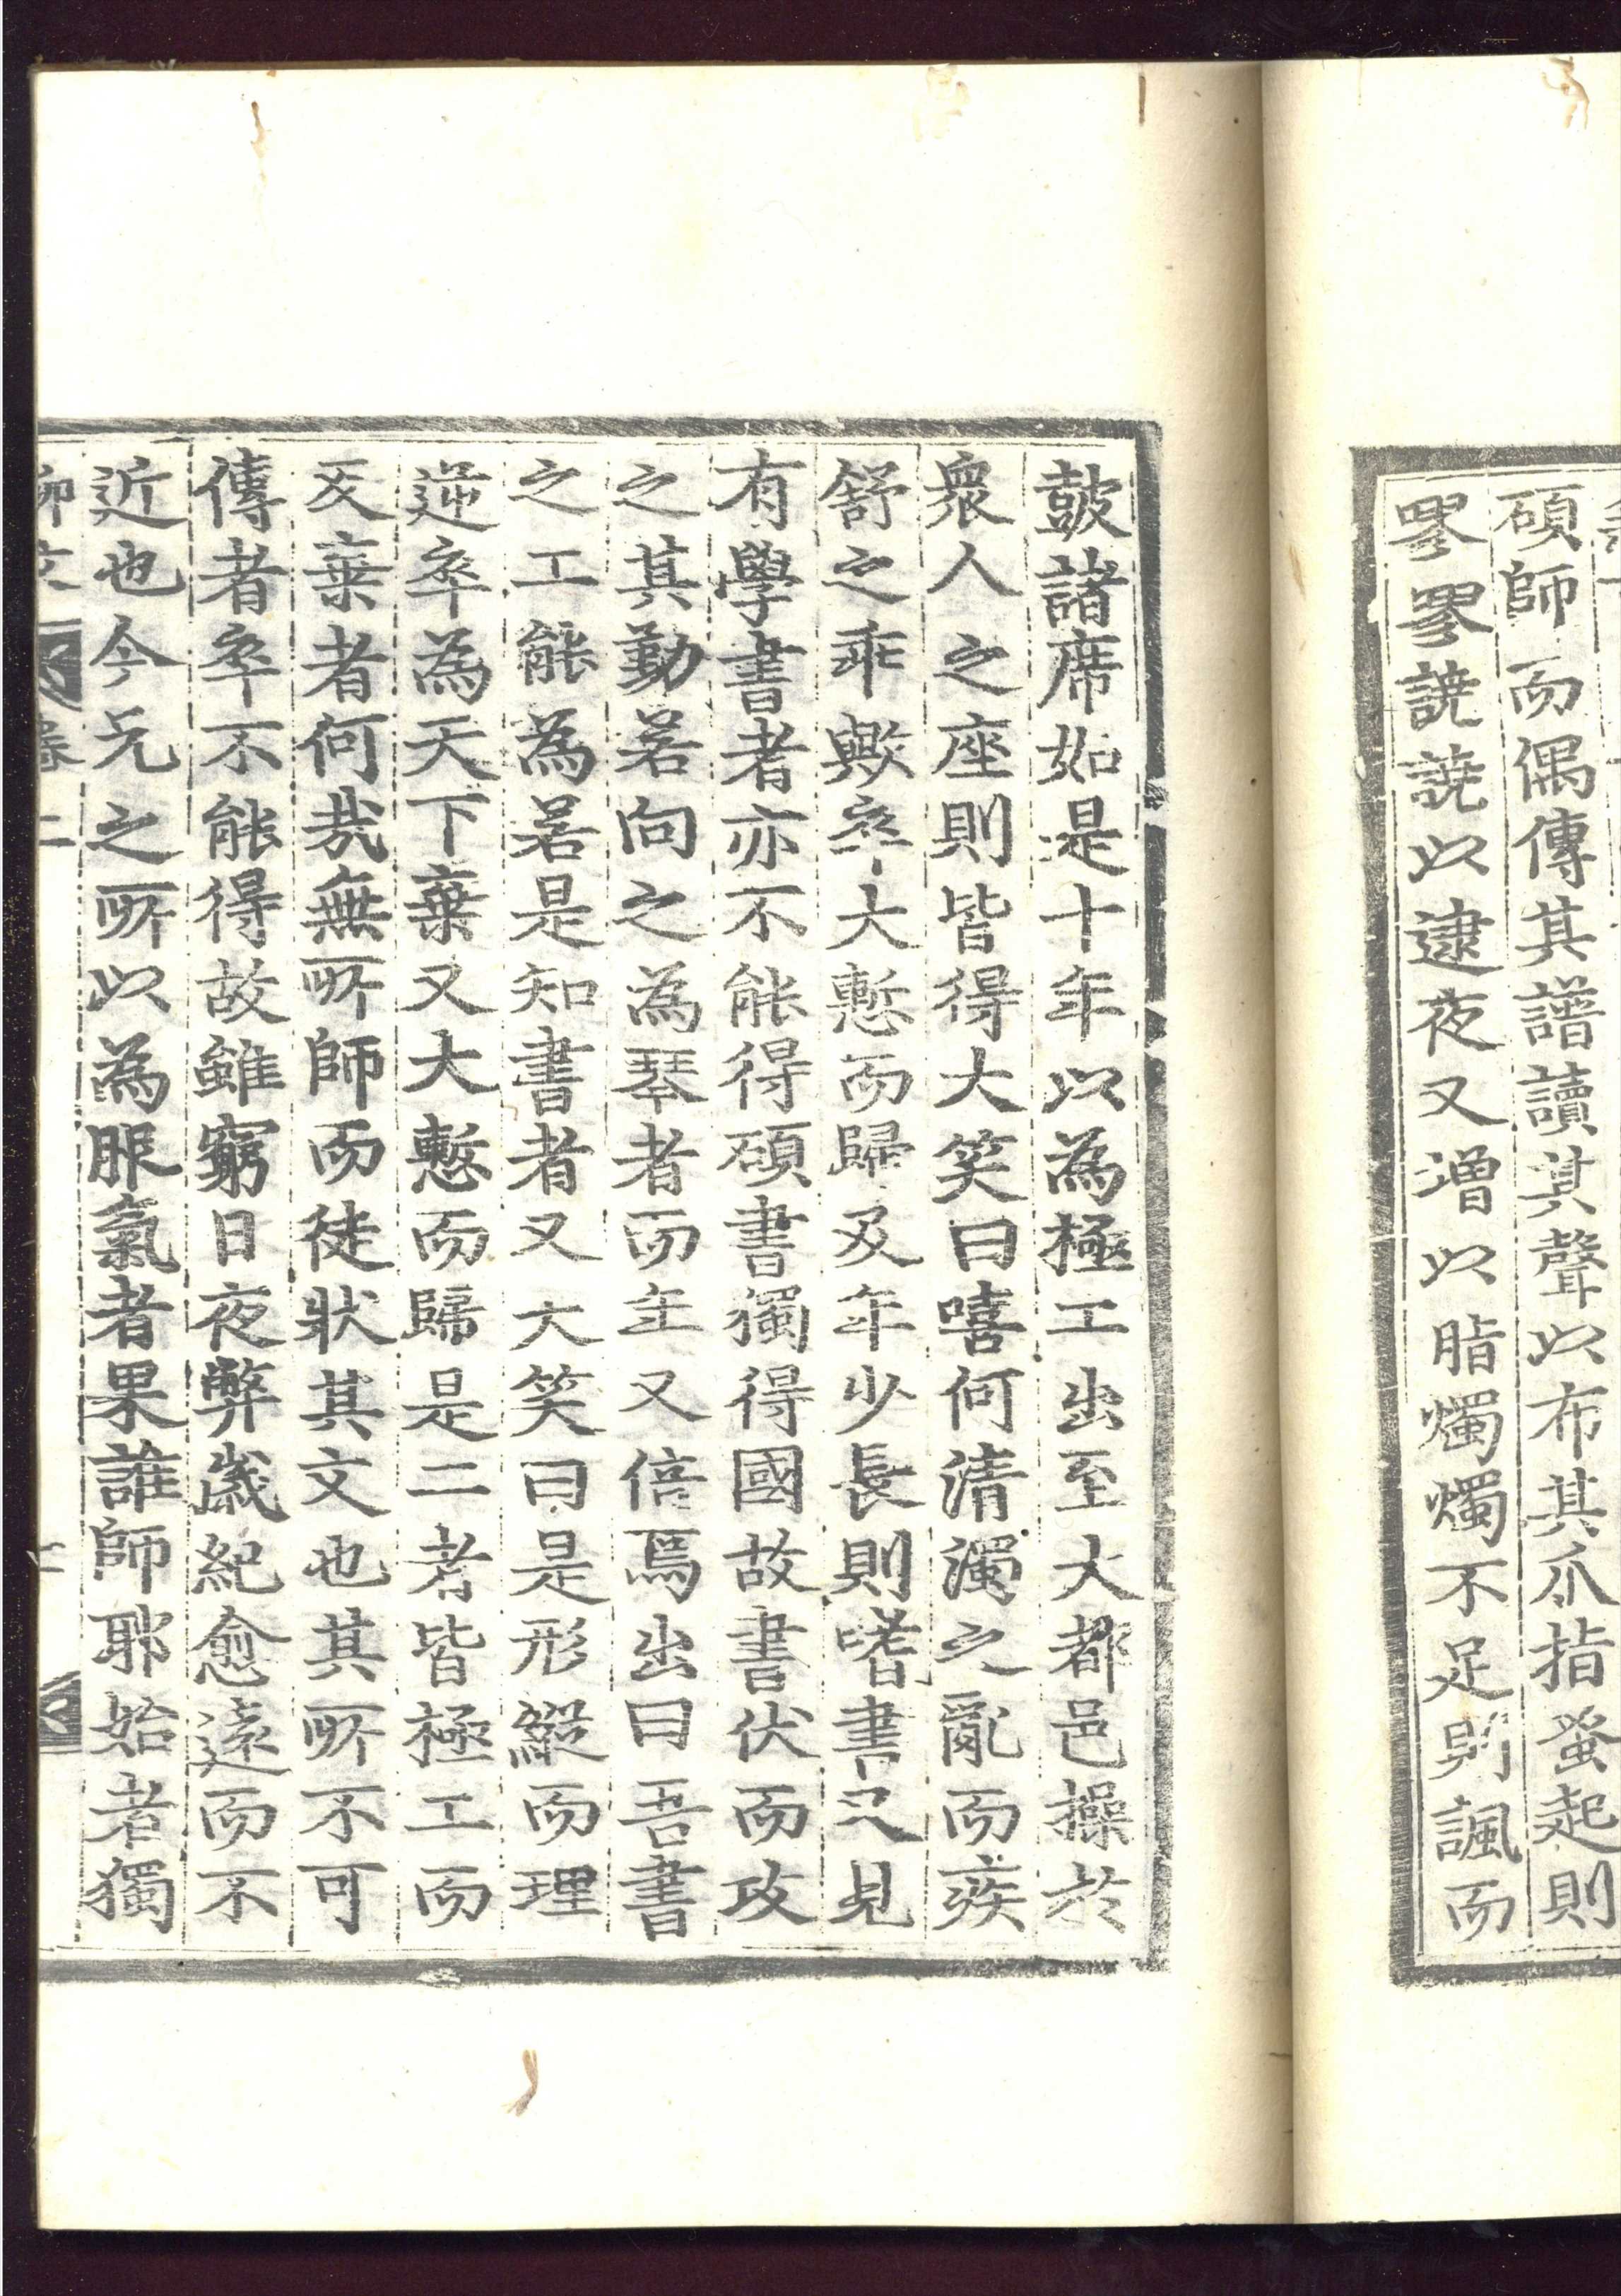 碩師而偶傳其譜讀其聲以布其爪指蚤起則
嘐嘐譊譊以逮夜又增以脂燭燭不足則諷而
鼓諸席如是十年以為極工出至大都邑操於
衆人之座則皆得大笑曰嘻何清濁之亂而疾
舒之乖歟卒大慙而歸及年少長則嗜書又見
有學書者亦不能得碩書獨得國故書伏而攻
之其勤若向之為琴者而年又倍焉出曰吾書
之工能為若是知書者又大笑曰是形縱而理
逆卒為天下棄又大慙而歸是二者皆極工而
反棄者何哉無所師而徒狀其文也其所不可
傳者卒不能得故雖窮日夜弊歲紀愈遠而不
近也今兄之所以為服氣者果誰師耶始者獨
柳文 彔二